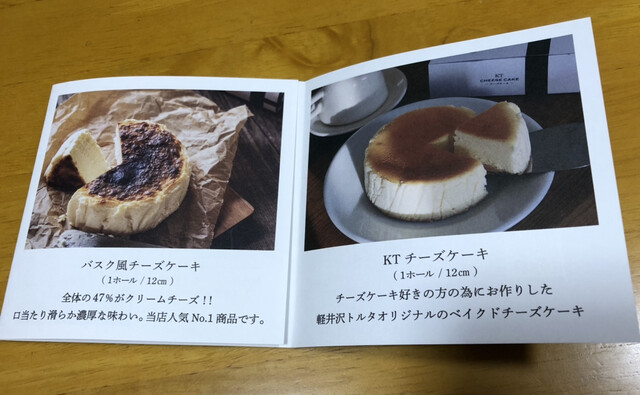 バスク風チーズケーキ
(1ホール / 12㎝)
全体の47%がクリームチーズ!!
口当たり滑らか濃厚な味わい。当店人気No.1商品です。
KT
CHEESE CAKE
KTチーズケーキ
(1ホール / 12㎝)
チーズケーキ好きの方の為にお作りした
軽井沢トルタオリジナルのベイクドチーズケーキ